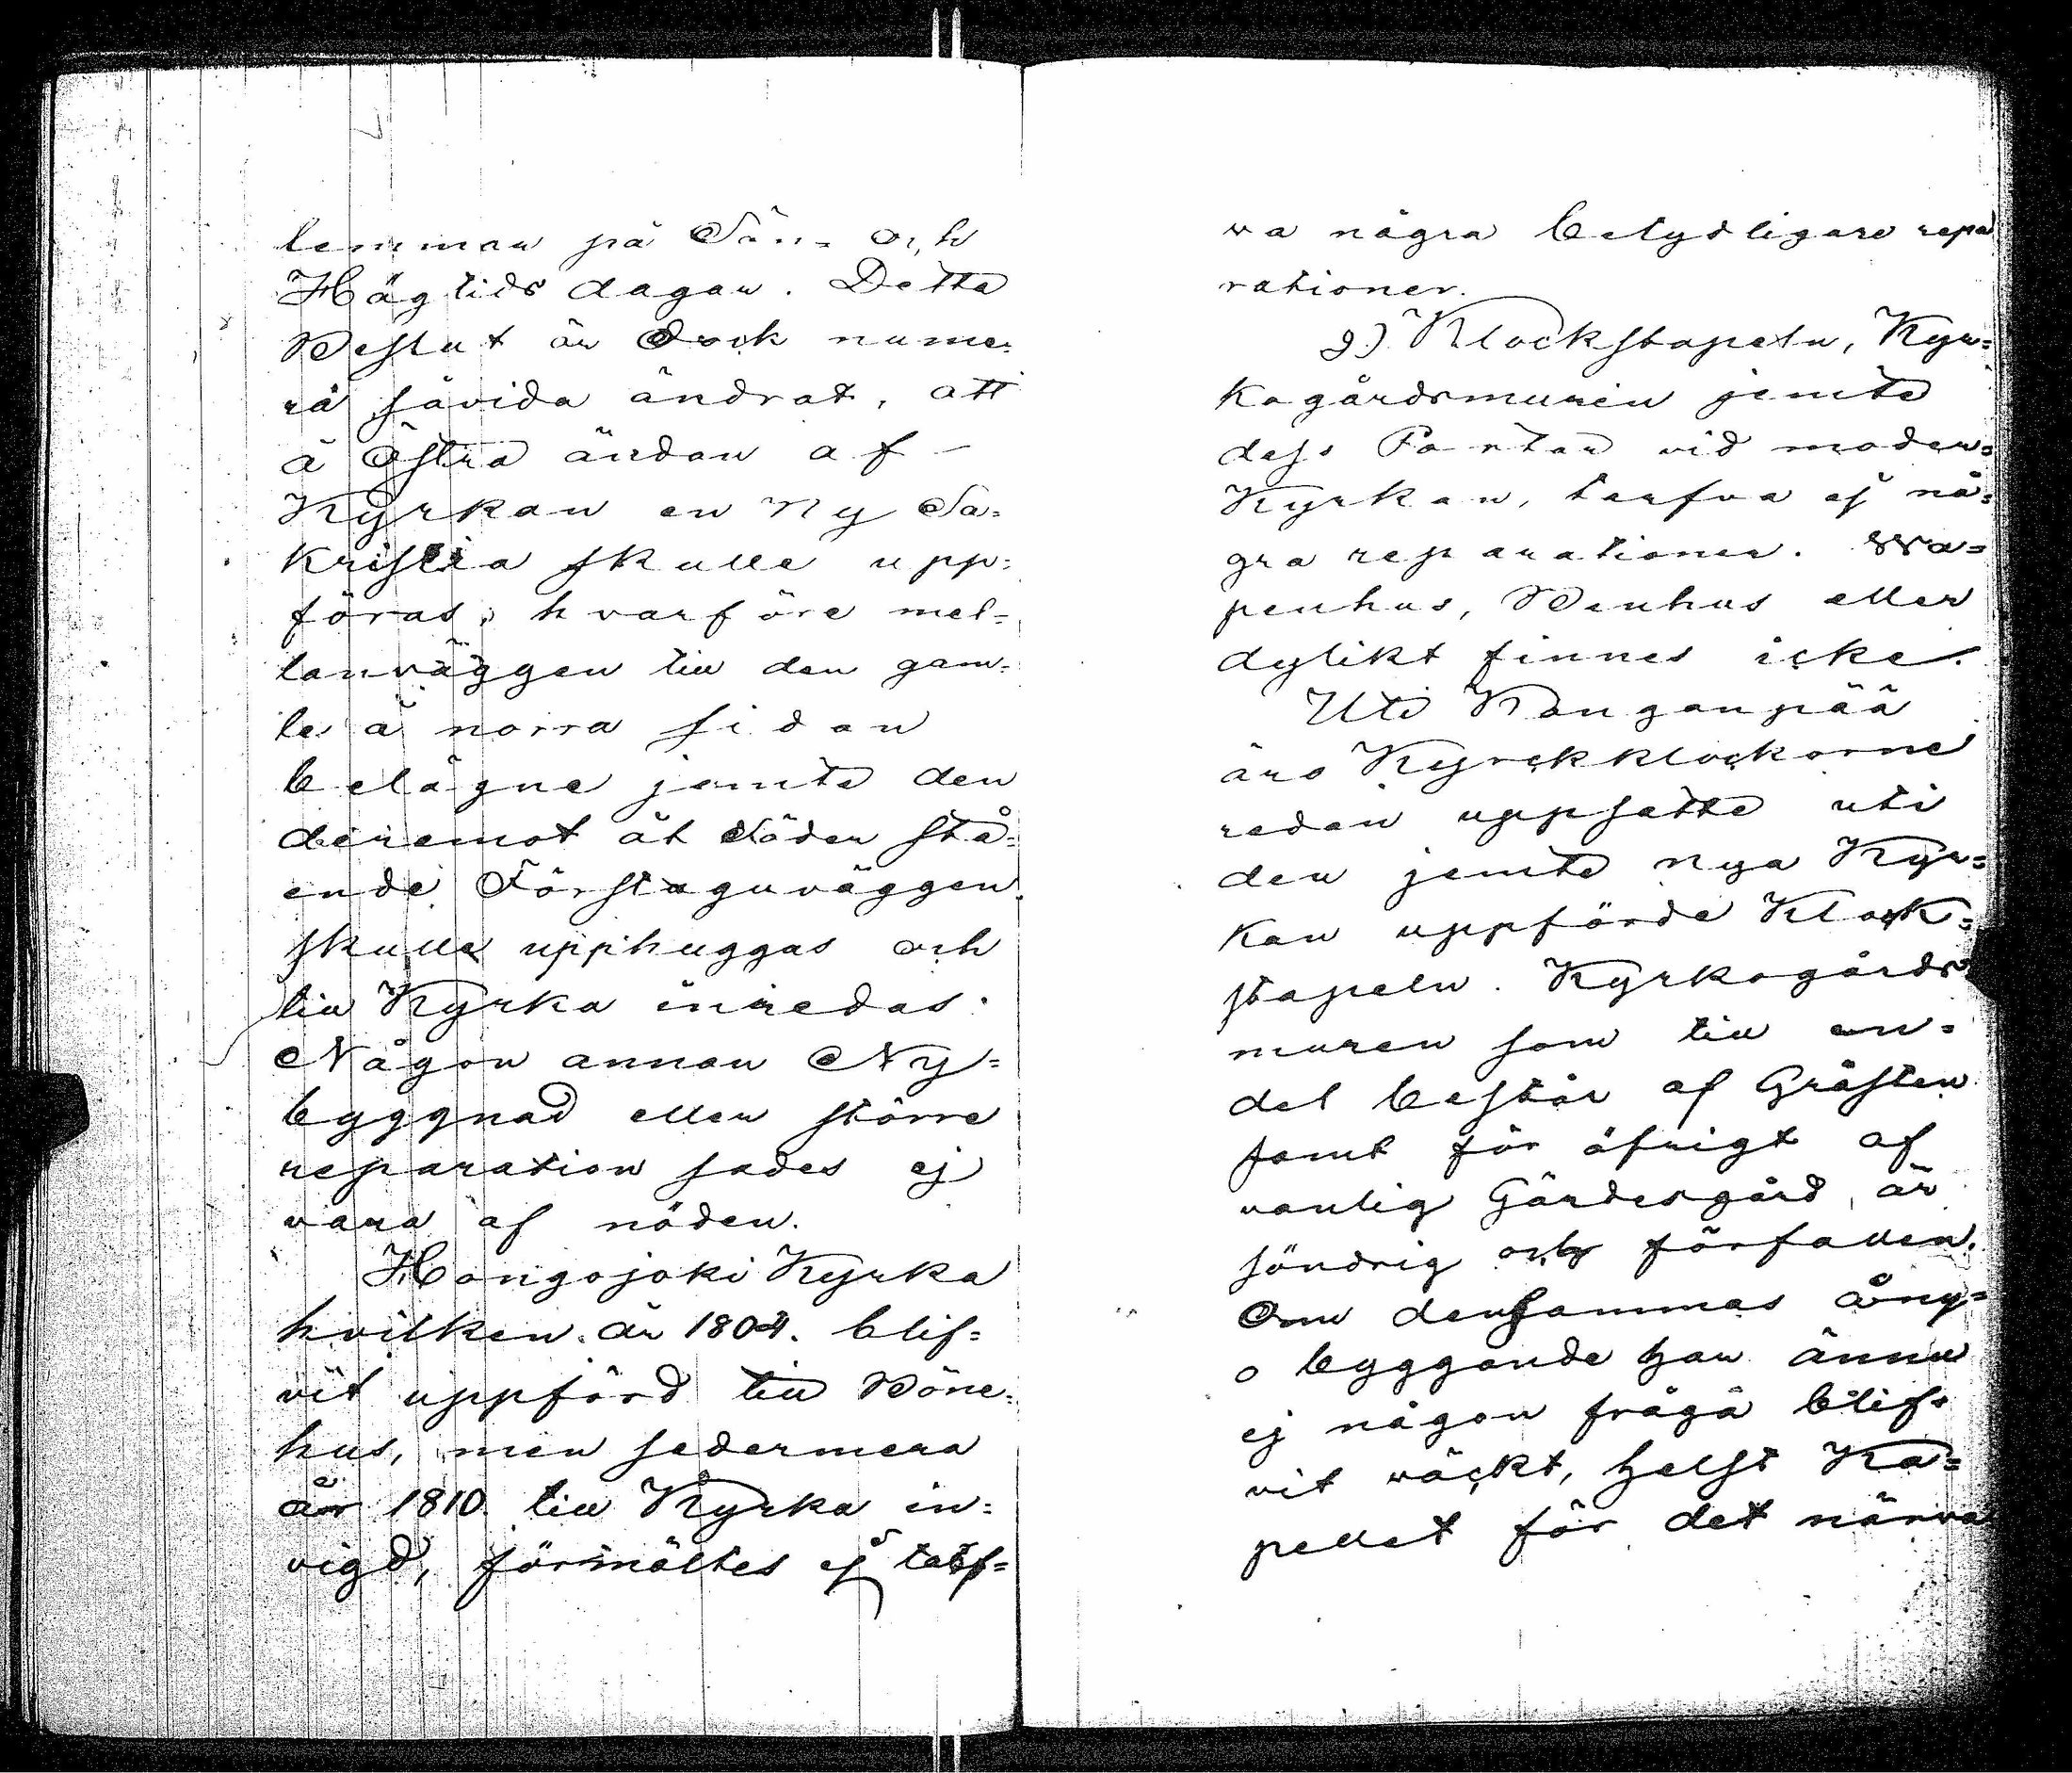 lemmar på Sön- och
Högtids dagar. Detta
Beslut är dock nume=
ra såvida ändrat, att
å Östra ändan af
Kyrkan en ny Sa=
kristia skulle upp=
föras, hvarföre mel=
lanväggen till den gam=
la å norra sidan
belägne jemte den
deremot åt Söder stå=
ende Förstuguväggen
skulle upphuggas och
till Kyrka inredas.
Någon annan Ny=
byggnad eller större
reparation sades ej
vara af nöden.
Hongojoki Kyrka
hvilken år 1804. blif=
vit uppförd till Böne=
hus, men sedermera
år 1810. till Kyrka in=
vigd, förmältes ej tarf=
va några betydligare repa
rationer.
2) Klockstapeln, Kyr=
kogårdsmuren jemte
dess Portar vid moder=
Kyrkan, tarfva ej nå=
gra reparationer. Wa=
penhus, Benhus eller
dylikt finnes icke.
Uti Kanganpää
äro Kyrckklockorne
redan uppsatte uti
den jemte nya Kyr=
kan uppförde Klock=
stapeln. Kyrkogårds
muren som till en=
del består af Gråsten
samt för öfrigt af
vanlig Gärdesgård, är
söndrig och förfallen.
Om densammas å ny=
o byggande har ännu
ej någon fråga blif=
vit väckt, helst Ka=
pellet för det närva